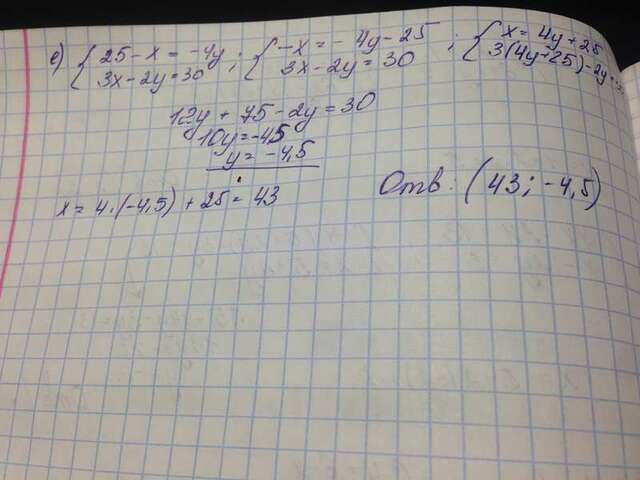 е) { 25 - x = -4y ; { -x = -4y - 25 ; { x = 4y + 25
3x - 2y = 30 3x - 2y = 30 3(4y+25) - 2y =
12y + 75 - 2y = 30
10y = -45
y = -4,5
x = 4·(-4,5) + 25 = 43
Отв: (43; -4,5)